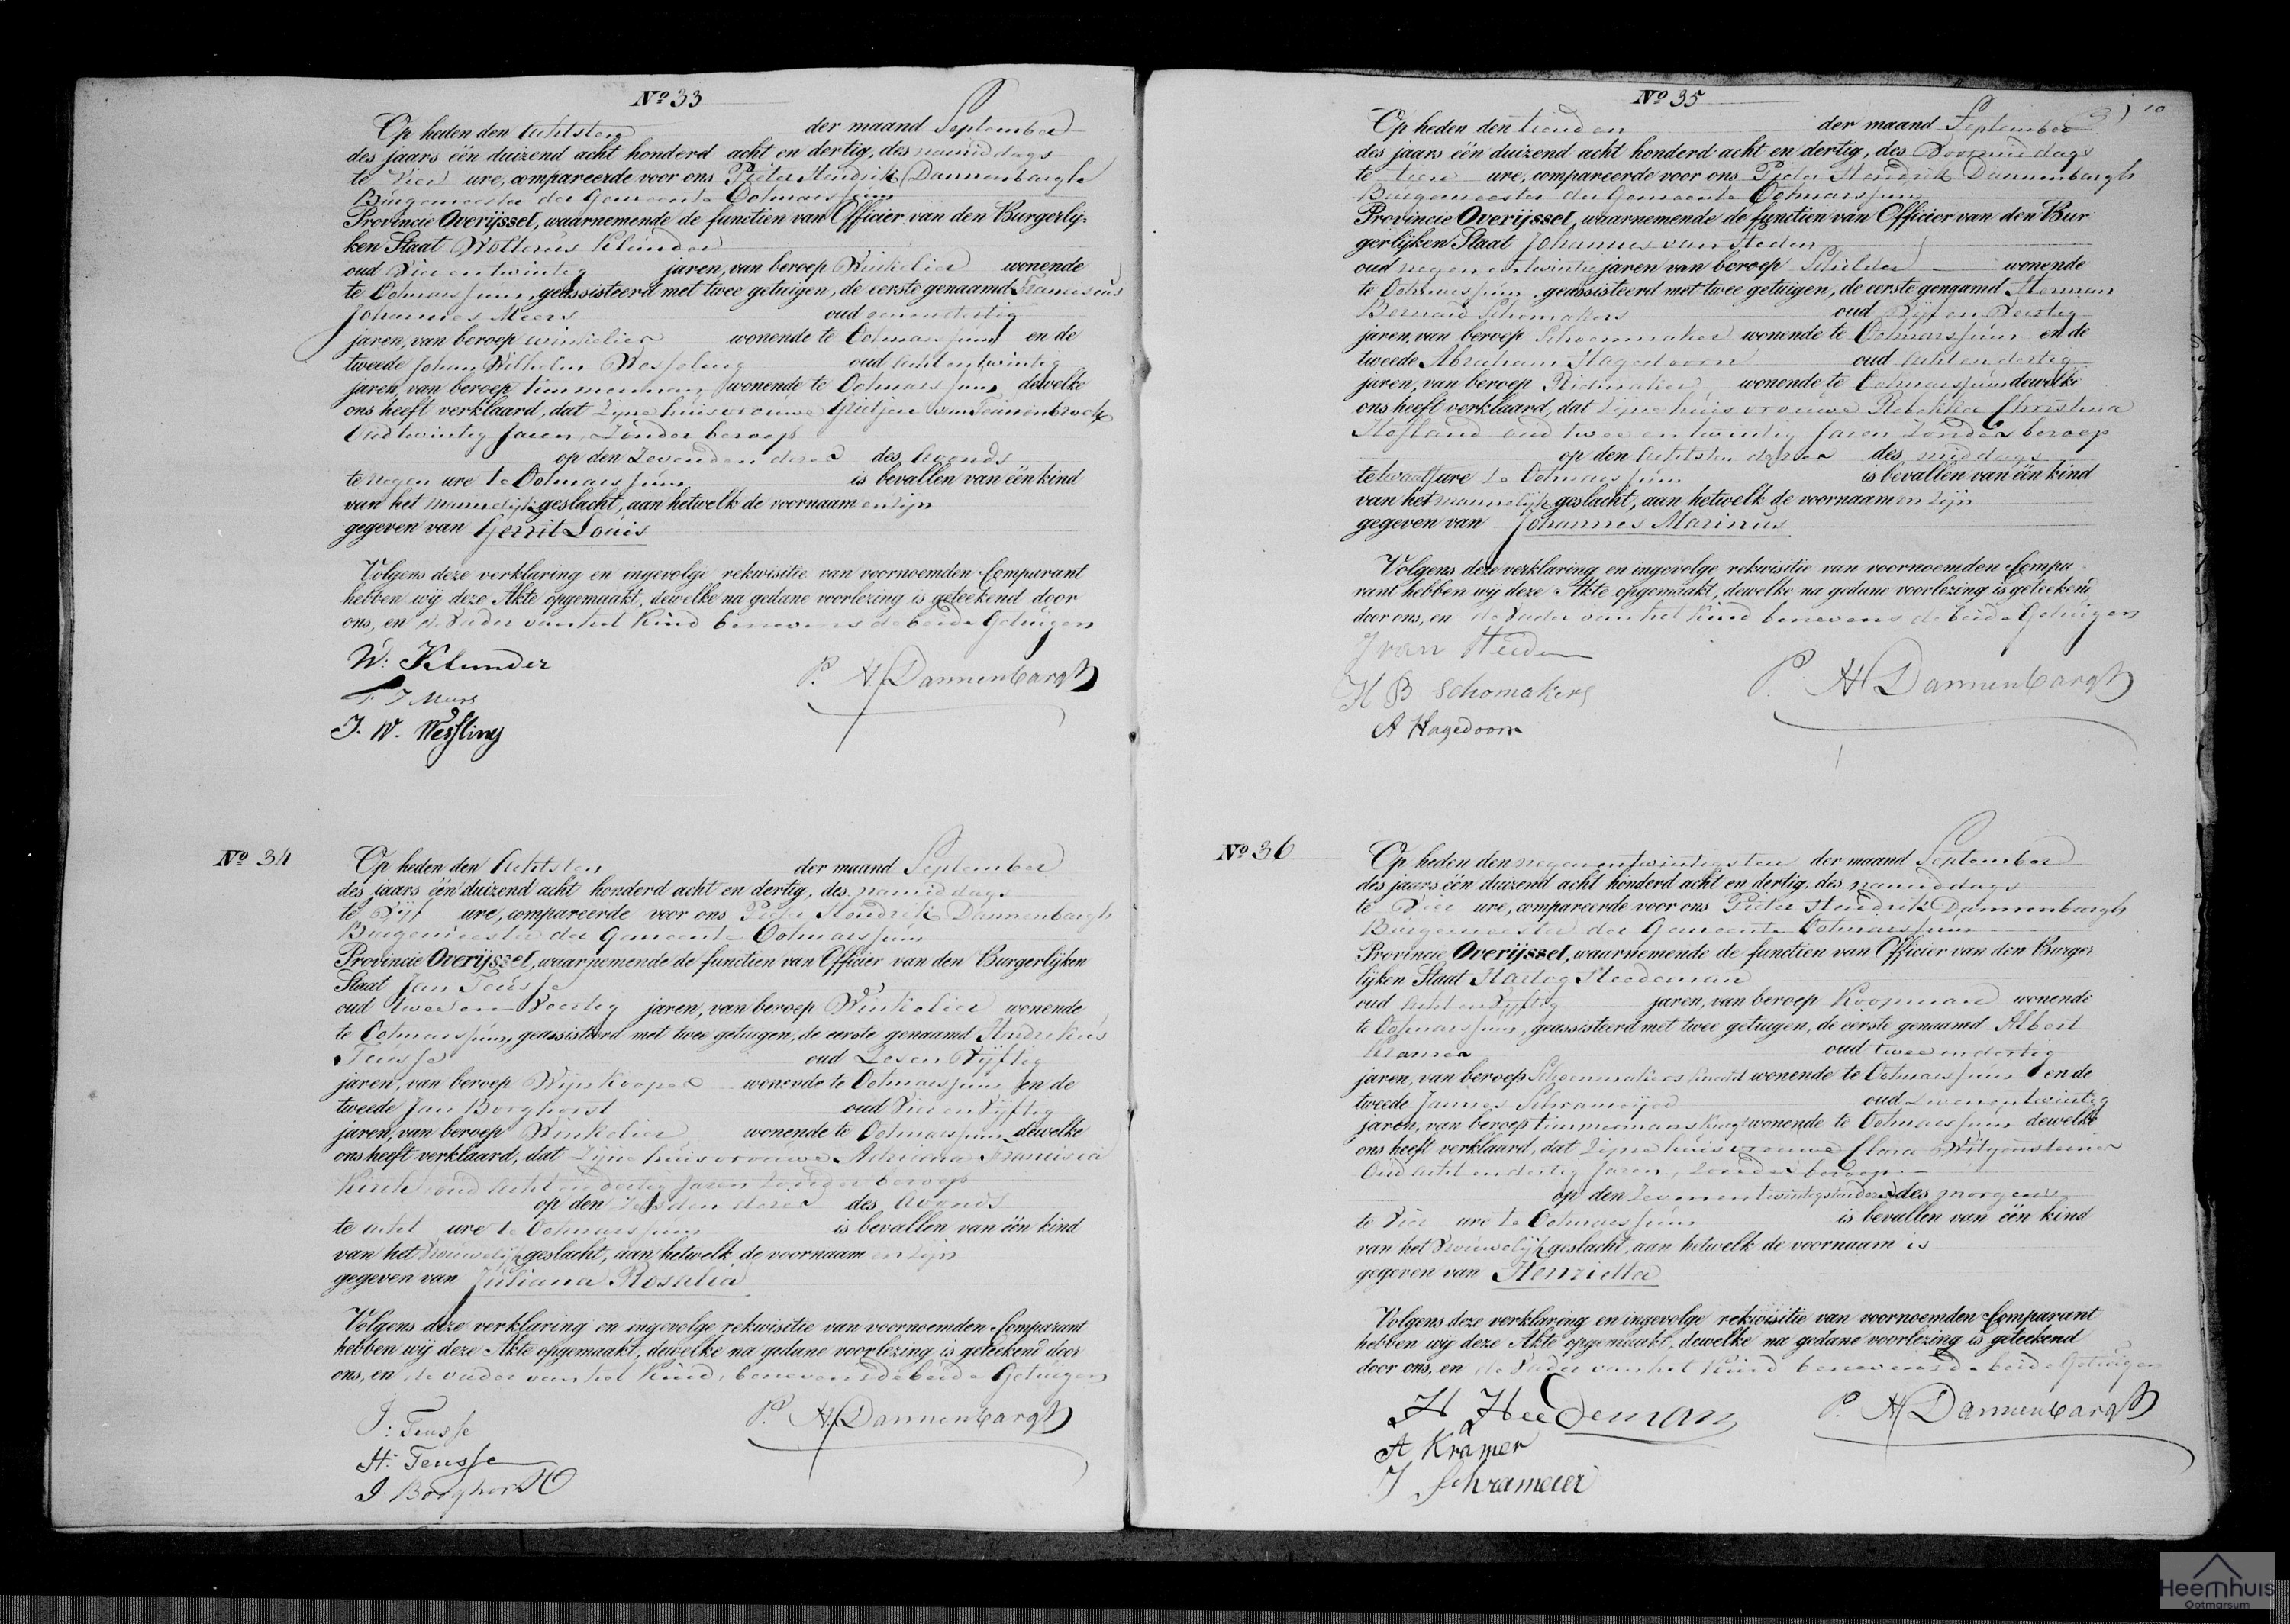 Nº 33
Op heden den Achtsten der maand September
des jaars één duizend acht honderd acht en dertig, des namiddags
te Vier ure, compareerde voor ons Pieter Hendrik Dannenbargh
Burgemeester der Gemeente Ootmarssum
Provincie Overijssel, waarnemende de functien van Officier van den Burgerlij-
ken Staat Wolterus Klunder
oud Vier en twintig jaren, van beroep Winkelier wonende
te Ootmarssum, geassisteerd met twee getuigen, de eerste genaamd Franciscus
Johannes Meers oud een en dertig
jaren, van beroep winkelier wonende te Ootmarssum en de
tweede Johan Wilhelm Wesseling oud Acht en twintig
jaren, van beroep timmerman, wonende te Ootmarssum, dewelke
ons heeft verklaard, dat Zijne huisvrouwe Grietjen van
Oud twintig Jaren, Zonder beroep
op den Zevenden dezer des Avonds
te negen ure te Ootmarssum is bevallen van één kind
van het mannelijk geslacht, aan hetwelk de voornaam en zijn
gegeven van Gerrit Louis
Volgens deze verklaring en ingevolge rekwisitie van voornoemden Comparant
hebben wij deze Akte opgemaakt, dewelke na gedane voorlezing is geteekend door
ons, en de Vader van het Kind benevens de beide Getuigen
W: Klunder
F J Meers
J. W. Wessling
P. H. Dannenbargh
Nº 34
Op heden den Achtsten der maand September
des jaars één duizend acht honderd acht en dertig, des namiddags
te Vijf ure, compareerde voor ons Pieter Hendrik Dannenbargh
Burgemeester der Gemeente Ootmarssum
Provincie Overijssel, waarnemende de functien van Officier van den Burgerlijken
Staat Jan Teusse
oud twee en Veertig jaren, van beroep Winkelier wonende
te Ootmarssum, geassisteerd met twee getuigen, de eerste genaamd Hendrikus
Teusse oud Zes en Vijftig
jaren, van beroep Wijnkooper wonende te Ootmarssum en de
tweede Jan Borghorst oud Vier en Vijftig
jaren, van beroep Winkelier, wonende te Ootmarssum dewelke
ons heeft verklaard, dat Zijne huisvrouwe Adriana Francisca
Kirch, oud Acht en dertig Jaren Zonder beroep
op den Zesden dezer des Avonds
te acht ure te Ootmarssum is bevallen van één kind
van het Vrouwelijk geslacht, aan hetwelk de voornaam en zijn
gegeven van Juliana Rosalia
Volgens deze verklaring en ingevolge rekwisitie van voornoemden Comparant
hebben wij deze Akte opgemaakt, dewelke na gedane voorlezing is geteekend door
ons, en de vader van het Kind, benevens de beide Getuigen
J: Teusse
H: Teusse
J. Borghorst
P. H. Dannenbargh
Nº 35
Op heden den tienden der maand September
des jaars één duizend acht honderd acht en dertig, des Voormiddags
te tien ure, compareerde voor ons Pieter Hendrik Dannenbargh
Burgemeester der Gemeente Ootmarssum
Provincie Overijssel, waarnemende de functien van Officier van den Bur
gerlijken Staat Johannes van Heden
oud negen en twintig jaren van beroep Schilder wonende
te Ootmarssum, geassisteerd met twee getuigen, de eerste genaamd Herman
Bernard Schomakers oud Vijf en Veertig
jaren, van beroep Schoenmaker wonende te Ootmarssum en de
tweede Abraham Hagedoorn oud Acht en dertig
jaren, van beroep Rietmaker, wonende te Ootmarssum dewelke
ons heeft verklaard, dat Zijne huisvrouwe Rebekka Christina
Hofland oud twee en twintig Jaren Zonder beroep
op den Achtsten dezer des middags
te twaalf ure te Ootmarssum is bevallen van één kind
van het mannelijk geslacht, aan hetwelk de voornaam en zijn
gegeven van Johannes Marinus
Volgens deze verklaring en ingevolge rekwisitie van voornoemden Compa-
rant hebben wy deze Akte opgemaakt, dewelke na gedane voorlezing is geteekend
door ons, en de Vader van het Kind benevens de beide Getuigen
J van Heden
H B Schomakers
A Hagedoorn
P. H Dannenbargh
Nº 36
Op heden den negen en twintigsten der maand September
des jaars één duizend acht honderd acht en dertig, des namiddags
te Vier ure, compareerde voor ons Pieter Hendrik Dannenbargh
Burgemeester der Gemeente Ootmarssum
Provincie Overijssel, waarnemende de functien van Officier van den Burger
lijken Staat Hartog Heedeman
oud Acht en Vyftig jaren, van beroep Koopman wonende
te Ootmarssum, geassisteerd met twee getuigen, de eerste genaamd Albert
Kramer oud twee en dertig
jaren, van beroep Schoenmakers knecht wonende te Ootmarssum en de
tweede Jannes Schrameijer oud Zeven en twintig
jaren, van beroep timmermans knegt wonende te Ootmarssum dewelke
ons heeft verklaard, dat Zijne huisvrouwe Clara Witgensteiner
Oud acht en dertig Jaren, Zonder beroep
op den Zeven en twintigsten dezer des morgens
te Vier ure te Ootmarssum is bevallen van één kind
van het Vrouwelijk geslacht, aan hetwelk de voornaam is
gegeven van Henrietta
Volgens deze verklaring en ingevolge rekwisitie van voornoemden Comparant
hebben wij deze Akte opgemaakt, dewelke na gedane voorlezing is geteekend
door ons, en de Vader van het Kind benevens de beide Getuigen
H Heedeman
A Kramer
J Schrameier
P. H Dannenbargh
Heemhuis
Ootmarsum